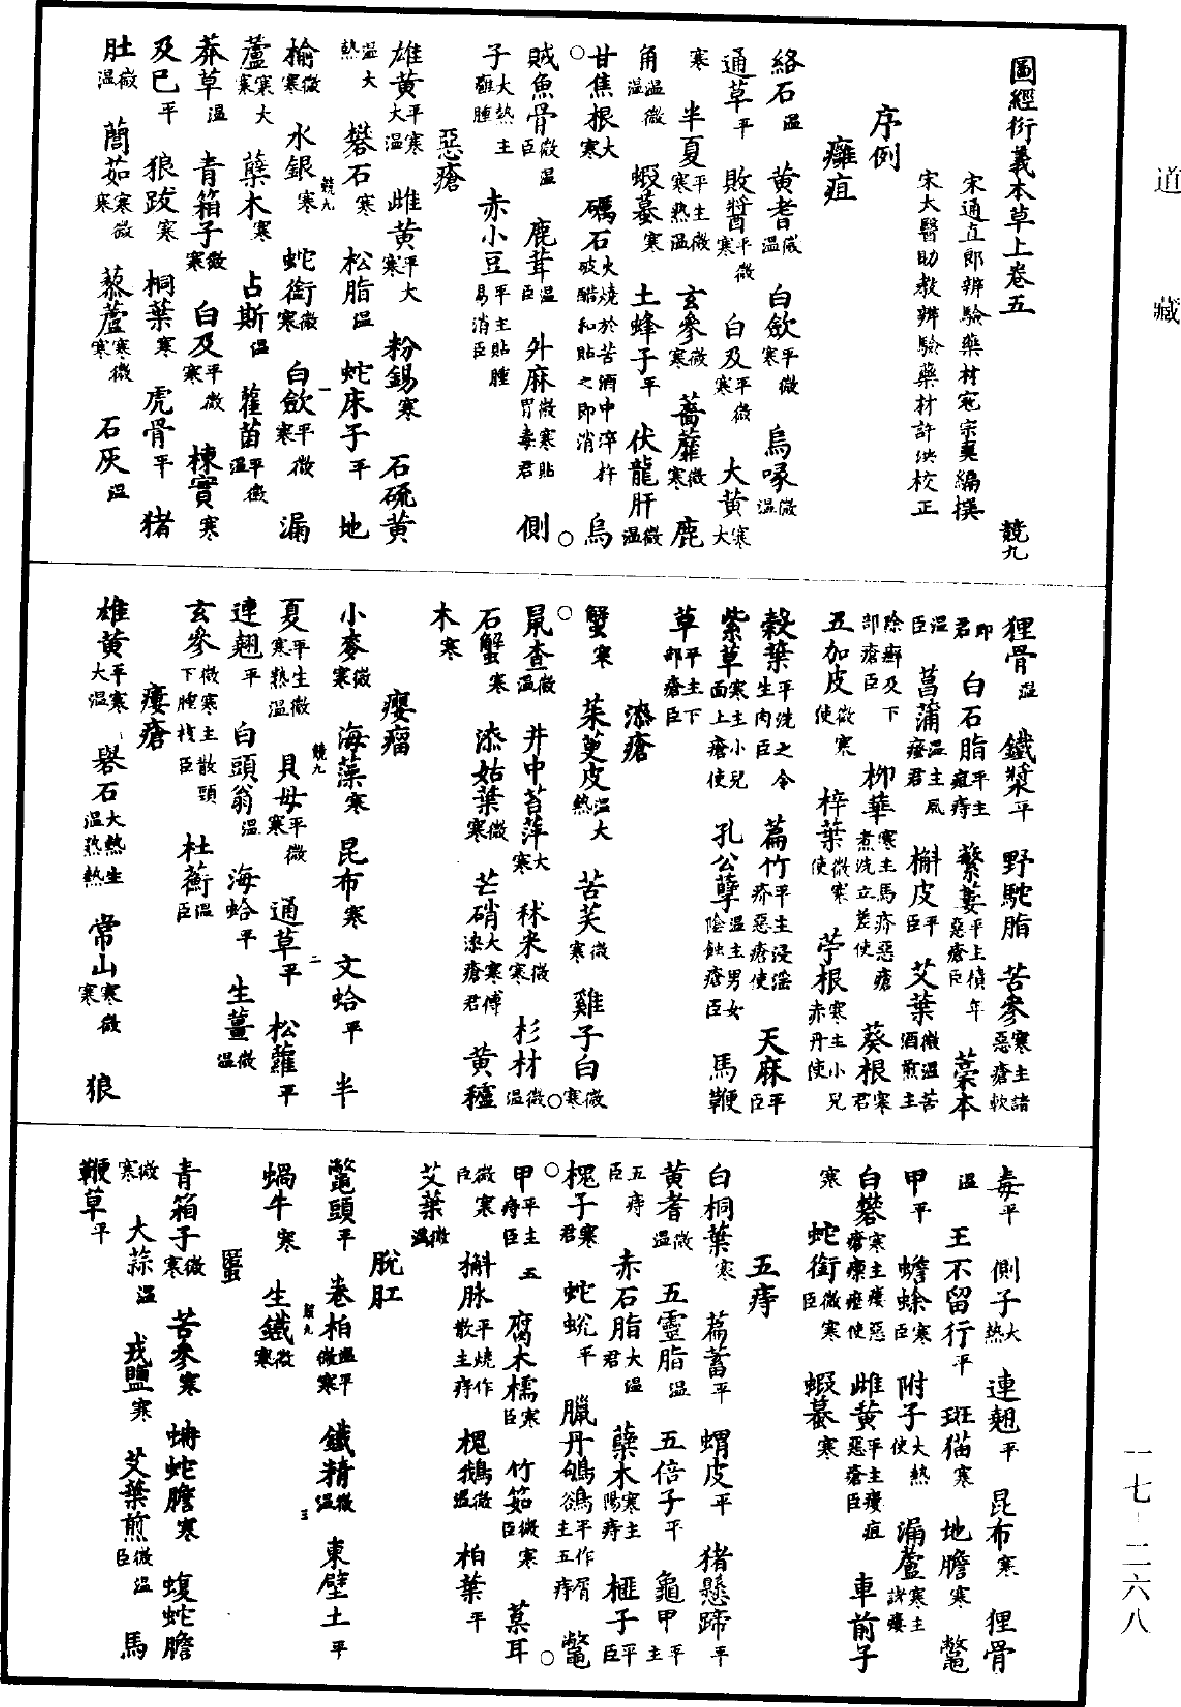 道藏
圖經衍義本草上卷五 競九
宋通直郎辨驗藥材寇宗奭編撰
宋太醫助教辨驗藥材許洪校正
序例
癰疽
絡石温 黃耆微温 白斂平微寒 烏喙微温
通草平 敗醬平微寒 白及平微寒 大黃寒大
寒 半夏平生微寒熟温 玄參微寒 薔蘼微寒 鹿
角温微温 蝦蟇寒 土蜂子平 伏龍肝微温
甘焦根大寒 礪石火燒於苦酒中淬杵破醋和貼之即消 烏
賊魚骨微温臣 鹿茸温臣 外麻微寒貼胃毒君 側
子大熱主難腫 赤小豆平主貼腫易消臣
惡瘡
雄黃平寒大温 雌黃平大寒 粉錫寒 石硫黃
温大熱 礬石寒 松脂温 蛇床子平 地
榆微寒 水銀寒 蛇銜微寒 白斂平微寒 漏
蘆寒大寒 蘗木寒 占斯温 雚菌平微温
莽草温 青葙子微寒 白及平微寒 楝實寒
及已平 狼跋寒 桐葉寒 虎骨平 猪
肚微温 蕳茹寒微寒 藜蘆寒微寒 石灰温
狸骨温 鐵漿平 野駝脂 苦參寒主諸惡瘡軟
即君 白石脂平主疽痔 蘩蔞平上積年惡瘡臣 藁本
温臣 菖蒲温主風瘡君 槲皮平臣 艾葉微温苦酒煎主
除癬及下部瘡臣 柳華寒主馬疥惡瘡煮洗立差使 葵根寒君
五加皮微寒使 梓葉微寒使 苧根寒主小兒赤丹使
穀葉平洗之令生肉臣 萹竹平主浸淫疥惡瘡使 天麻平臣
紫草寒主小兒面上瘡使 孔公孽温主男女陰蝕瘡臣 馬鞭
草平主下部瘡臣
漆瘡
蟹寒 茱萸皮温大熱 苦芺微寒 雞子白微寒
鼠查微温 井中苔萍大寒 秫米微寒 杉材微温
石蟹寒 漆姑葉微寒 芒硝大寒傅漆瘡君 黃櫨
木寒
癭瘤
小麥微寒 海藻寒 昆布寒 文蛤平 半
夏平生微寒熟温 貝母平微寒 通草平 松蘿平
連翹平 白頭翁温 海蛤平 生薑微温
玄參微寒主散頸下腫核臣 杜蘅温臣
瘻瘡
雄黃平寒大温 礜石大熱生温熟熱 常山寒微寒 狼
毒平 側子大熱 連翹平 昆布寒 狸骨
温 王不留行平 斑猫寒 地膽寒 鼈
甲平 蟾蜍寒臣 附子大熱使 漏蘆寒主諸瘻
白礬寒主瘻惡瘡瘰癧使 雌黃平主瘻疽惡瘡臣 車前子
寒 蛇銜微寒臣 蝦蟇寒
五痔
白桐葉寒 萹蓄平 蝟皮平 猪懸蹄平
黃耆微温 五靈脂温 五倍子平 龜甲平主
五痔臣 赤石脂大温君 蘗木寒主陽痔 榧子平臣
槐子寒君 蛇蛻平 臘丹鴝鵒平作屑主五痔 鼈
甲平主痔臣 腐木檽寒臣 竹筎微寒臣 菓耳
微寒臣 槲脉平燒作散主痔 槐鵝微温 柏葉平
艾葉微温
脫肛
鼈頭平 卷柏温平微寒 鐵精微温 東壁土平
蝸牛寒 生鐵微寒
䘌
青葙子微寒 苦參寒 蚺蛇膽寒 蝮蛇膽
微寒 大蒜温 戎鹽寒 艾葉煎微温臣 馬
鞭草平
一七-二六八